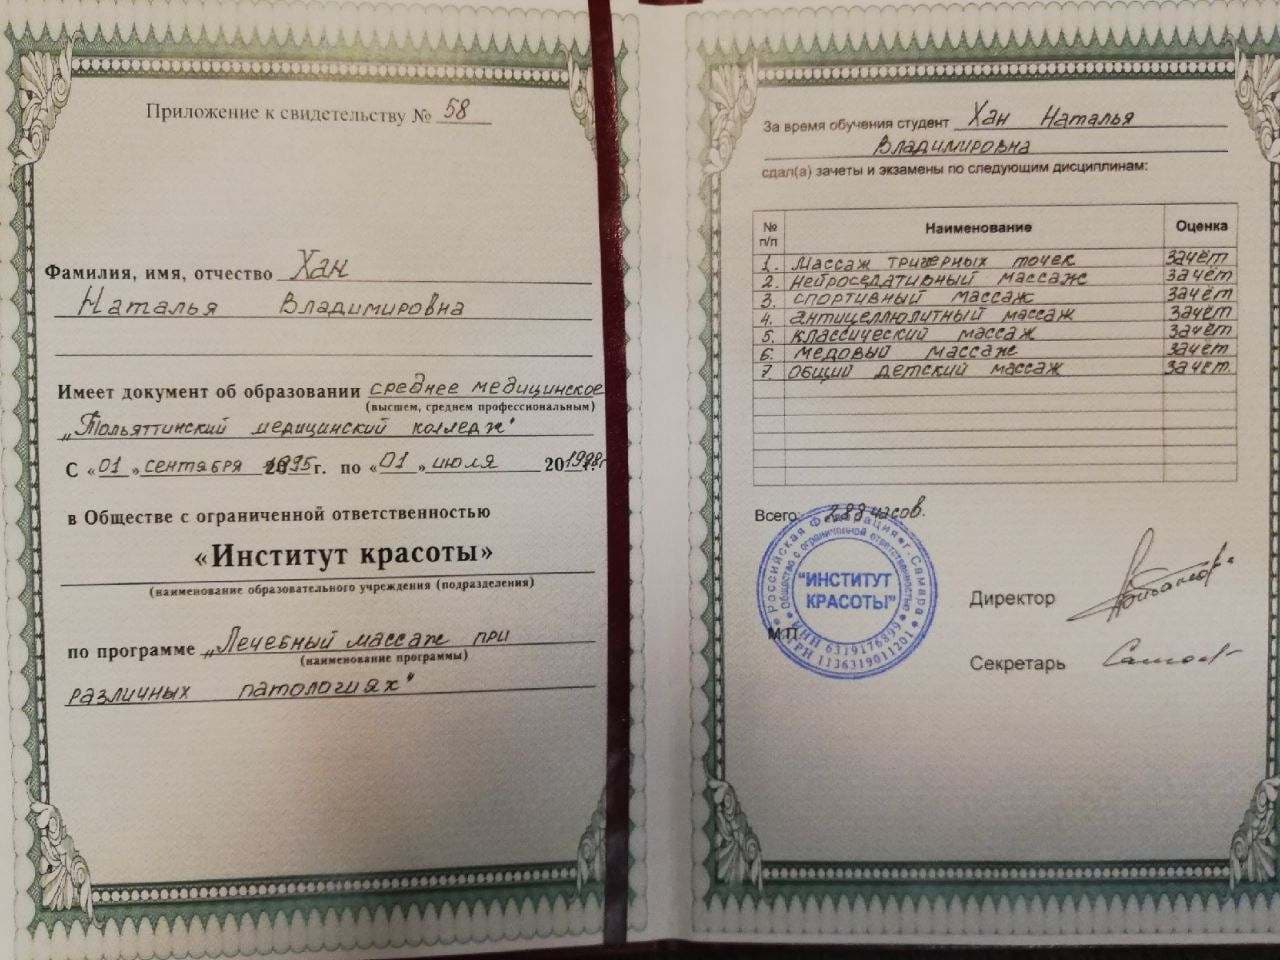 Приложение к свидетельству № 58
Фамилия, имя, отчество Хан
Наталья Владимировна
Имеет документ об образовании среднее медицинское
(высшем, среднем профессиональным)
„Тольяттинский медицинский колледж"
С «01» сентября 1995г. по «01» июля 201998г
в Обществе с ограниченной ответственностью
«Институт красоты»
(наименование образовательного учреждения (подразделения)
по программе „Лечебный массаж при
(наименование программы)
различных патологиях"
За время обучения студент Хан Наталья
Владимировна
сдал(а) зачеты и экзамены по следующим дисциплинам:
№ п/п Наименование Оценка
1. Массаж тригерных точек зачёт
2. Нейроседативный массаж зачёт
3. спортивный массаж зачёт
4. антицеллюлитный массаж зачёт
5. классический массаж зачёт
6. медовый массаж зачёт
7. общий детский массаж зачёт.
Всего: 288 часов.
Российская Федерация г. Самара
Общество с ограниченной ответственностью
"ИНСТИТУТ
КРАСОТЫ"
ИНН 6319176899
ОГРН 1136319011201
М.П.
Директор
Секретарь